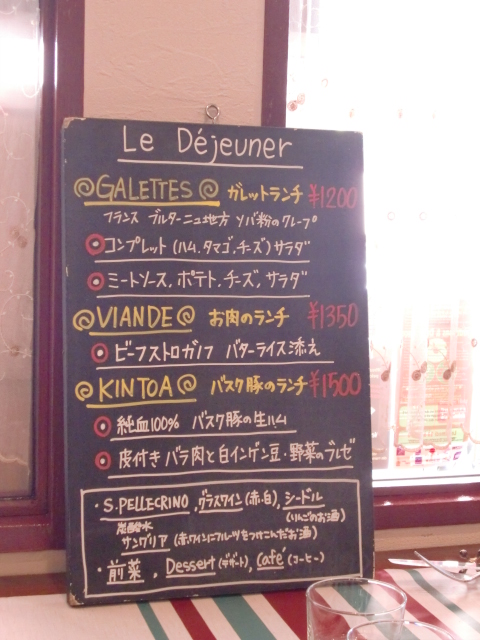 Le Déjeuner
GALETTES ガレットランチ ¥1200
フランス ブルターニュ地方 ソバ粉のクレープ
コンプレット (ハム、タマゴ、チーズ) サラダ
ミートソース、ポテト、チーズ、サラダ
VIANDE お肉のランチ ¥1350
ビーフストロガノフ バターライス添え
KINTOA バスク豚のランチ ¥1500
純血100% バスク豚の生ハム
皮付きバラ肉と白インゲン豆・野菜のブレゼ
・S.PELLEGRINO、グラスワイン(赤・白)、シードル
炭酸水 (りんごのお酒)
サングリア (赤ワインにフルーツをつけこんだお酒)
・前菜、Dessert (デザート)、Café (コーヒー)